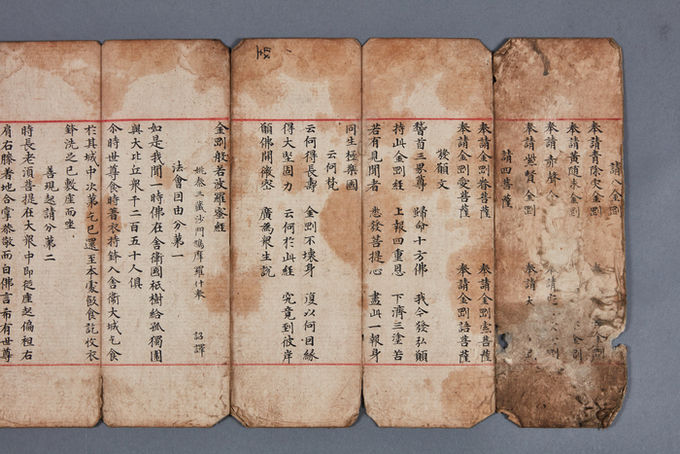 請八金剛
奉請青除灾金剛
奉請黃隨求金剛 金剛
奉請赤聲 奉請
奉請紫賢金剛 奉請大
請四菩薩
奉請金剛眷菩薩 奉請金剛索菩薩
奉請金剛愛菩薩 奉請金剛語菩薩
後願文
稽首三界尊 歸命十方佛 我今發弘願
持此金剛經 上報四重恩 下濟三塗苦
若有見聞者 悉發菩提心 盡此一報身
同生極樂國
云何梵
云何得長壽 金剛不壞身 復以何因緣
得大堅固力 云何於此經 究竟到彼岸
願佛開微密 廣為眾生說
金剛般若波羅蜜經
姚秦三藏沙門鳩摩羅什奉 詔譯
法會因由分第一
如是我聞一時佛在舍衛國祇樹給孤獨園
與大比丘眾千二百五十人俱
尒時世尊食時著衣持鉢入舍衛大城乞食
於其城中次第乞已還至本處飯食訖收衣
鉢洗足已敷座而坐
善現起請分第二
時長老須菩提在大眾中即從座起偏袒右
肩右膝著地合掌恭敬而白佛言希有世尊